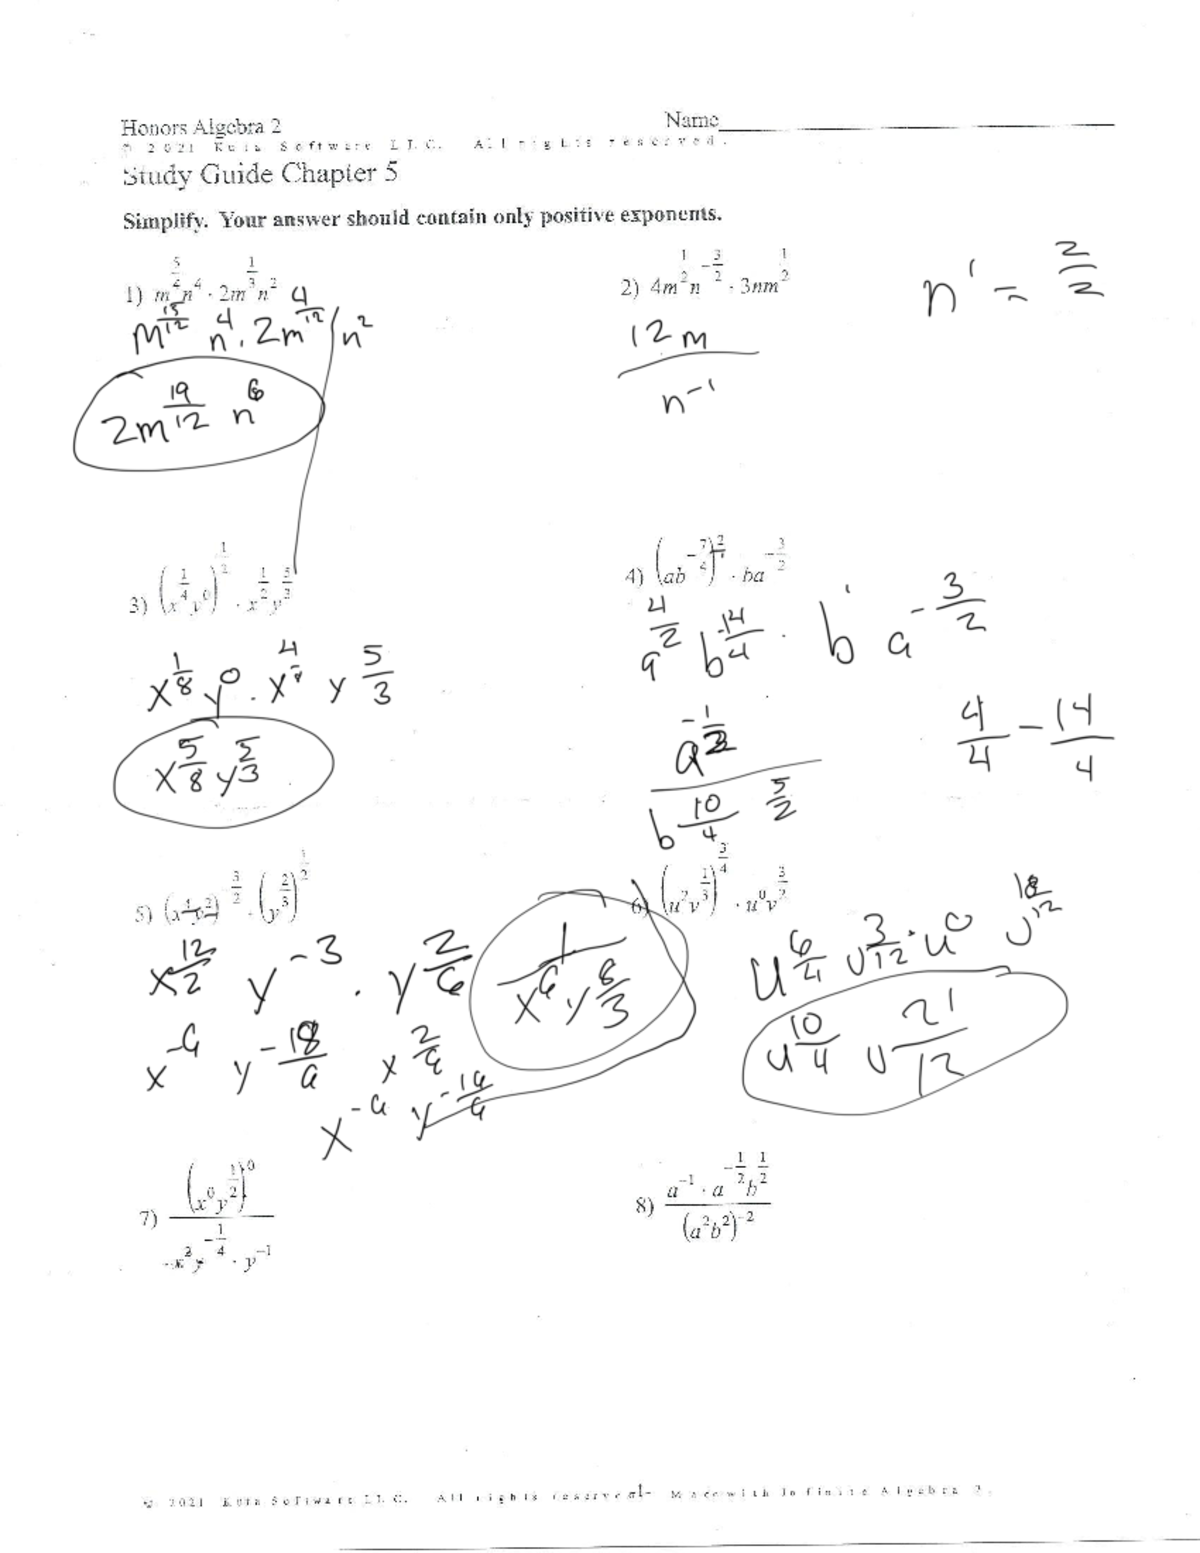 Honors Algebra 2
Name
© 2021 Kuta Software LLC. All rights reserved.
Study Guide Chapter 5
Simplify. Your answer should contain only positive exponents.
1) m^(5/4) n^4 · 2m^(1/3) n^2
m^(15/12) n^4 · 2m^(4/12) n^2
2m^(19/12) n^6
2) 4m^(1/2) n^(-3/2) · 3nm^(1/2)
n^1 = 2/2
12m / n^-1
3) (x^(1/4) y^0)^(1/2) · x^(1/2) y^(5/3)
x^(1/8) y^0 · x^(4/8) y^(5/3)
x^(5/8) y^(5/3)
4) (ab^(-7/4))^2 · ba^(-3/2)
a^(4/2) b^(-14/4) · b^1 a^(-3/2)
4/4 - 14/4
a^(-1/2) / b^(10/4) 5/2
5) (x^4 y^2)^(-3/2) · (y^(2/3))^(1/2)
x^(12/2) y^-3 · y^(2/6)
1 / x^6 y^(8/3)
x^-6 y^(-18/6) x^(2/6)
x^-6 y^(-16/6)
6) (u^2 v^(1/3))^(3/4) · u^0 v^(3/2)
u^(6/4) v^(3/12) · u^0 v^(18/12)
u^(10/4) v^(21/12)
7) (x^0 y^(1/2))^0 / x^2 y^(-1/4) · y^-1
8) a^-1 · a^(-1/2) b^(1/2) / (a^2 b^2)^-2
© 2021 Kuta Software LLC. All rights reserved. Made with Infinite Algebra 2.
-1-